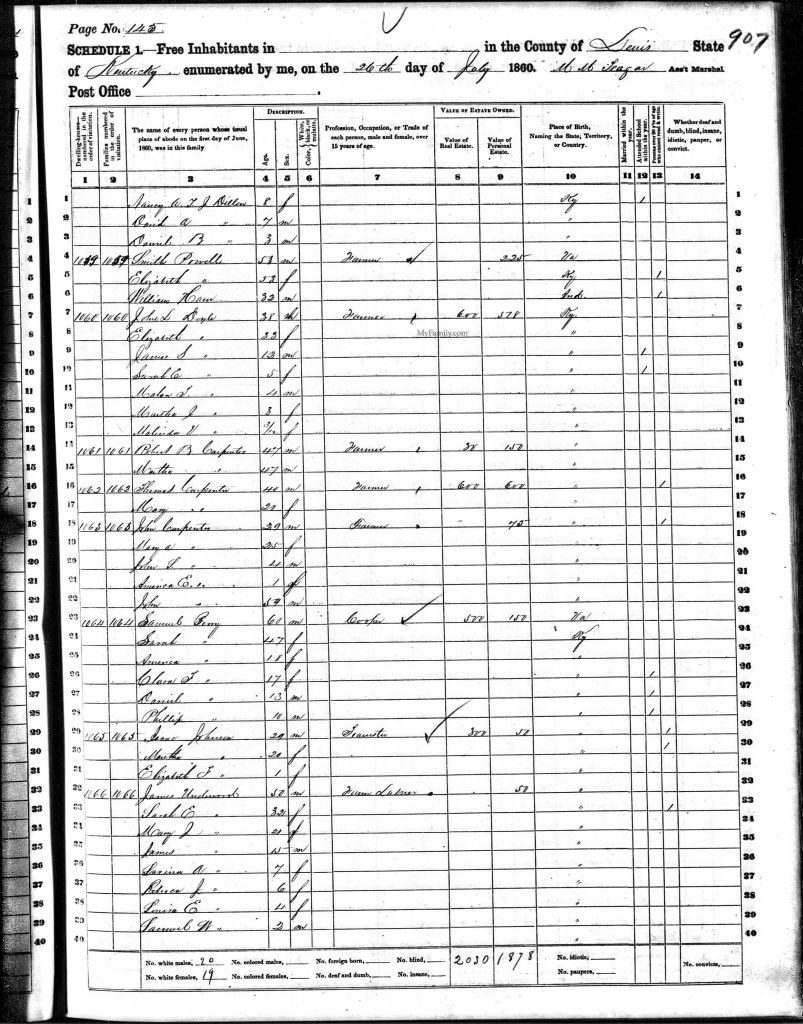 Page No. 145
907
SCHEDULE 1.—Free Inhabitants in in the County of Lewis State
of Kentucky enumerated by me, on the 26th day of July 1860. M M Teagar Ass't Marshal
Post Office
Dwelling-houses— numbered in the order of visitation.
Families numbered in the order of visitation.
The name of every person whose usual place of abode on the first day of June, 1860, was in this family.
DESCRIPTION.
Age.
Sex.
Color, White, black, or mulatto.
Profession, Occupation, or Trade of each person, male and female, over 15 years of age.
VALUE OF ESTATE OWNED.
Value of Real Estate.
Value of Personal Estate.
Place of Birth, Naming the State, Territory, or Country.
Married within the year.
Attended School within the year.
Persons over 20 y'rs of age who cannot read & write.
Whether deaf and dumb, blind, insane, idiotic, pauper, or convict.
1 2 3 4 5 6 7 8 9 10 11 12 13 14
1 Nancy A T J Dillon 8 f Ky 1 1
2 David A " 7 m " 2
3 Daniel B " 3 m " 3
4 1059 1059 Smith Powell 53 m Farmer 225 Va 4
5 Elizabeth " 53 f Ky 1 5
6 William Ham 32 m Ind. 1 6
7 1060 1060 John L Doyle 38 m Farmer 600 578 Ky. 7
MyFamily.com
8 Elizabeth " 33 f " 8
9 James S " 12 m " 1 9
10 Sarah C " 5 f " 1 10
11 " 4 m " 11
12 Martha J " 3 f " 12
13 Malinda V " f " 13
14 1061 1061 Robert B Carpenter 47 m Farmer 30 150 " 14
15 Martha " 47 m " 15
16 1062 1062 Thomas Carpenter 40 m Farmer 600 600 " 1 16
17 Mary " 20 f " 17
18 1063 1063 John Carpenter 29 m Farmer 75 " 1 18
19 Mary A " 25 f " 19
20 John S. " 4 m " 20
21 America E. " 1 f " 21
22 John " 59 m " 22
23 1064 1064 Samuel Berry 60 m Cooper 500 150 Va 23
24 Sarah " 47 f Ky 24
25 America " 18 f " 25
26 Clara F " 17 f " 1 26
27 Daniel " 13 m " 1 27
28 Phillip " 10 m " 1 28
29 1065 1065 Isaac Johnson 29 m Teamster 300 50 " 1 29
30 Martha " 20 f " 1 30
31 Elizabeth F " 1 f " 31
32 1066 1066 James Underwood 50 m Farm Laborer 50 " 32
33 Sarah E " 32 f " 1 33
34 Mary J " 20 f " 34
35 James " 15 m " 35
36 Lavina A " 7 f " 36
37 Rebecca J " 6 f " 37
38 Louisa E " 4 f " 38
39 Samuel W " 2 m " 39
40 " 40
No. white males, 20 No. colored males, No. foreign born, No. blind, 2030 1878 No. idiotic,
No. white females, 19 No. colored females, No. deaf and dumb, No. insane, No. paupers, No. convicts,